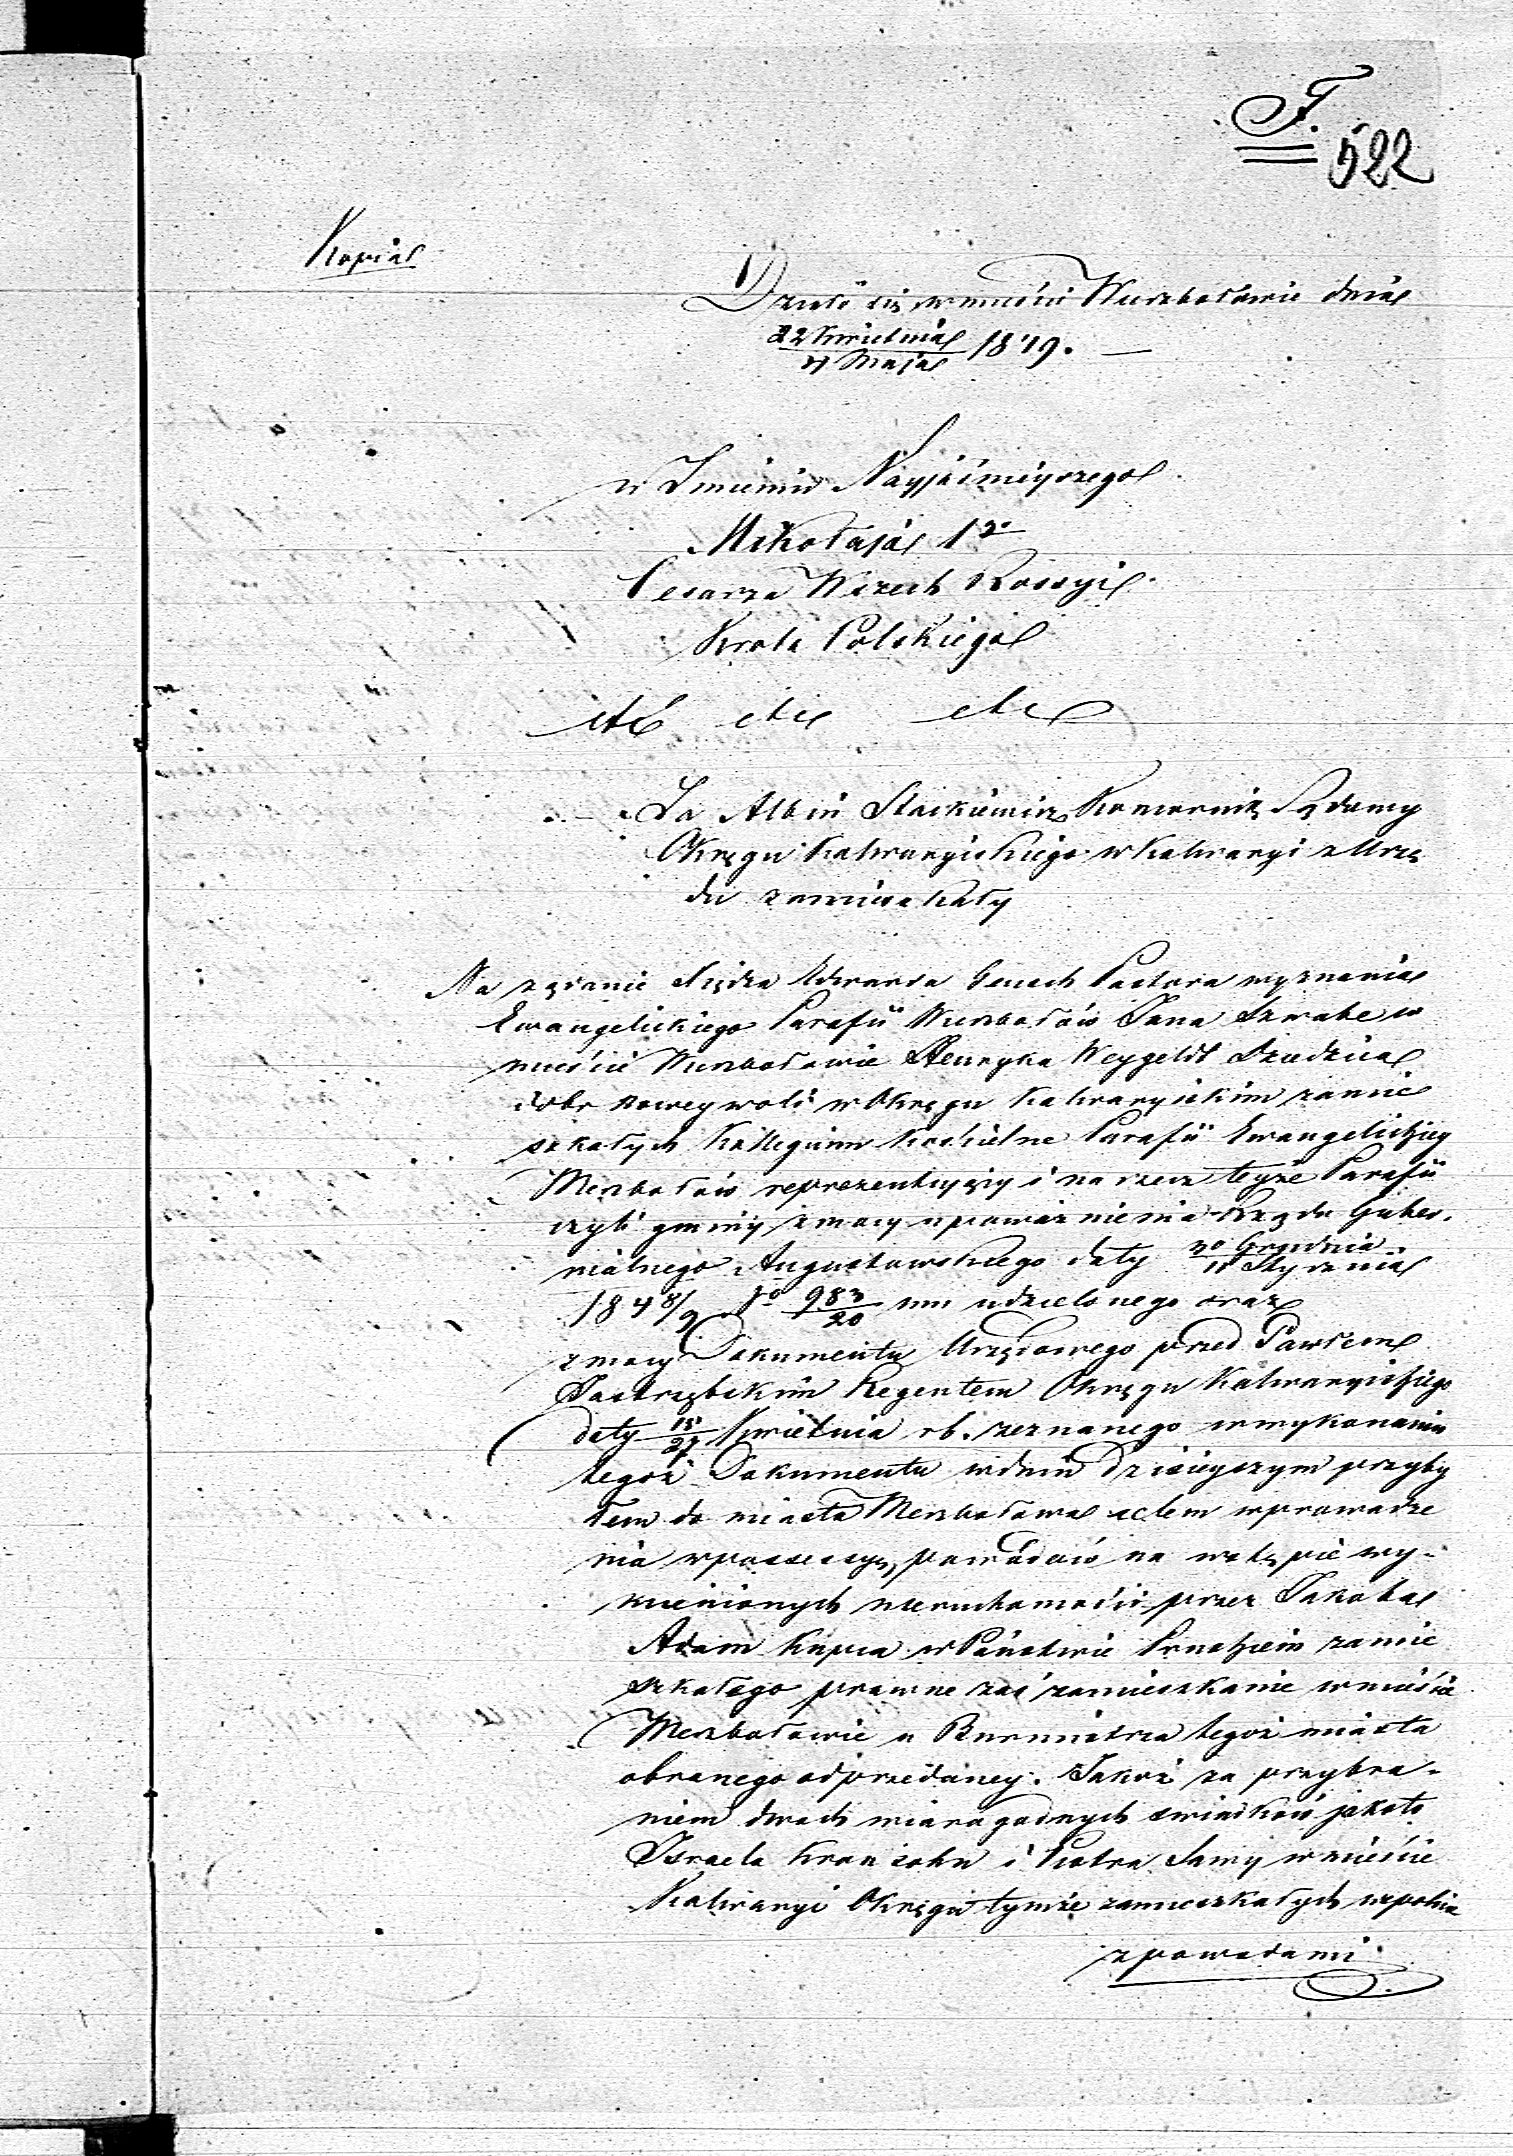 F.
522
Kopia
Działo się w mieście Wierzbołowie dnia
22 Kwietnia / 4 Maja 1849. —
w Imieniu Nayjaśnieyszego
Mikołaja 1go
Cesarza Wszech Rossyi
Króla Polskiego
etc etc etc
Ja Albin Stackiewicz Komornik Sądowy
Okręgu Kalwaryiskiego w Kalwaryi z Urzę
du zamieszkały
Na żądanie Xiędza Edwarda Pastora wyznania
Ewangelickiego Parafii Wierzbołów Jana Szwabe w
mieście Wierzbołowie Henryka Weygeldt Dziedzica
dóbr Nowey woli w Okręgu Kalwaryiskim zamie
szkałych Kollegium Kościelne Parafii Ewangelickiey
Wierzbołów reprezentuiący i na rzecz teyże Parafii
czyli gminy z mocy upoważnienia Rządu Guber.
nialnego Augustowskiego daty 30 Grudnia / 11 Stycznia
184 8/9 No 983/20 mu udzielonego oraz
z mocy Dokumentu Urzędowego przed Pawłem
Jastrzębskim Regentem Okręgu Kalwaryiskiego
daty 15/27 Kwietnia rb. zeznanego w wykonaniu
tegoż Dokumentu w dniu dzisieyszym przyby
łem do miasta Wierzbołowa celem wprowadze
nia w possessyę powodów na wstępie wy-
mienionych nieruchomości przez Jakoba
Adam Kupca w Państwie Pruskiem zamie
szkałego prawne zaś zamieszkanie w mieście
Wierzbołowie u Burmistrza tegoż miasta
obranego odprzedaney. Jakoż za przybra-
niem dwóch wiarogodnych świadków jakoto
Israela i Piotra w mieście
Kalwaryi Okręgu tymże zamieszkałych wspólnie
z powodami